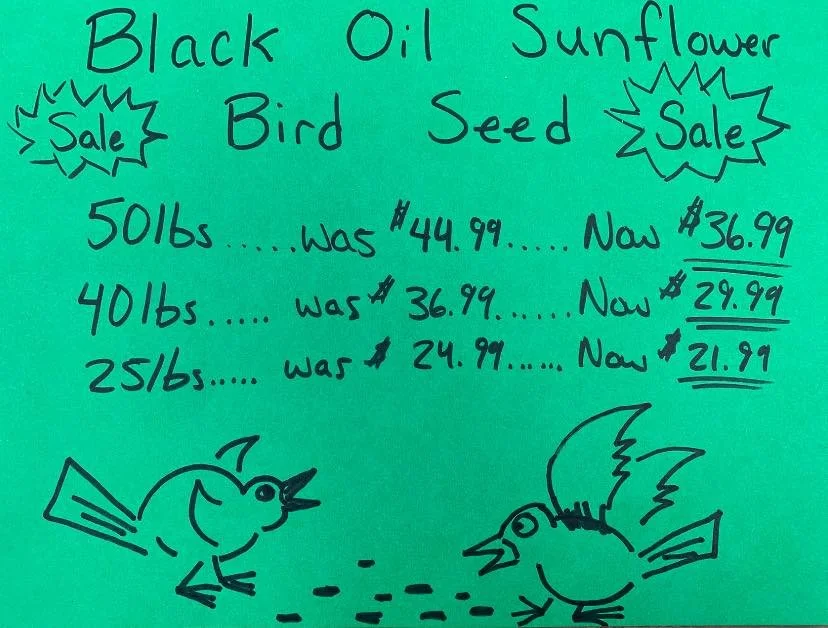 Black Oil Sunflower
Sale Bird Seed Sale
50lbs.....was $44.99..... Now $36.99
40lbs..... was $ 36.99...... Now $ 29.99
25lbs..... was $ 24.99...... Now $ 21.99